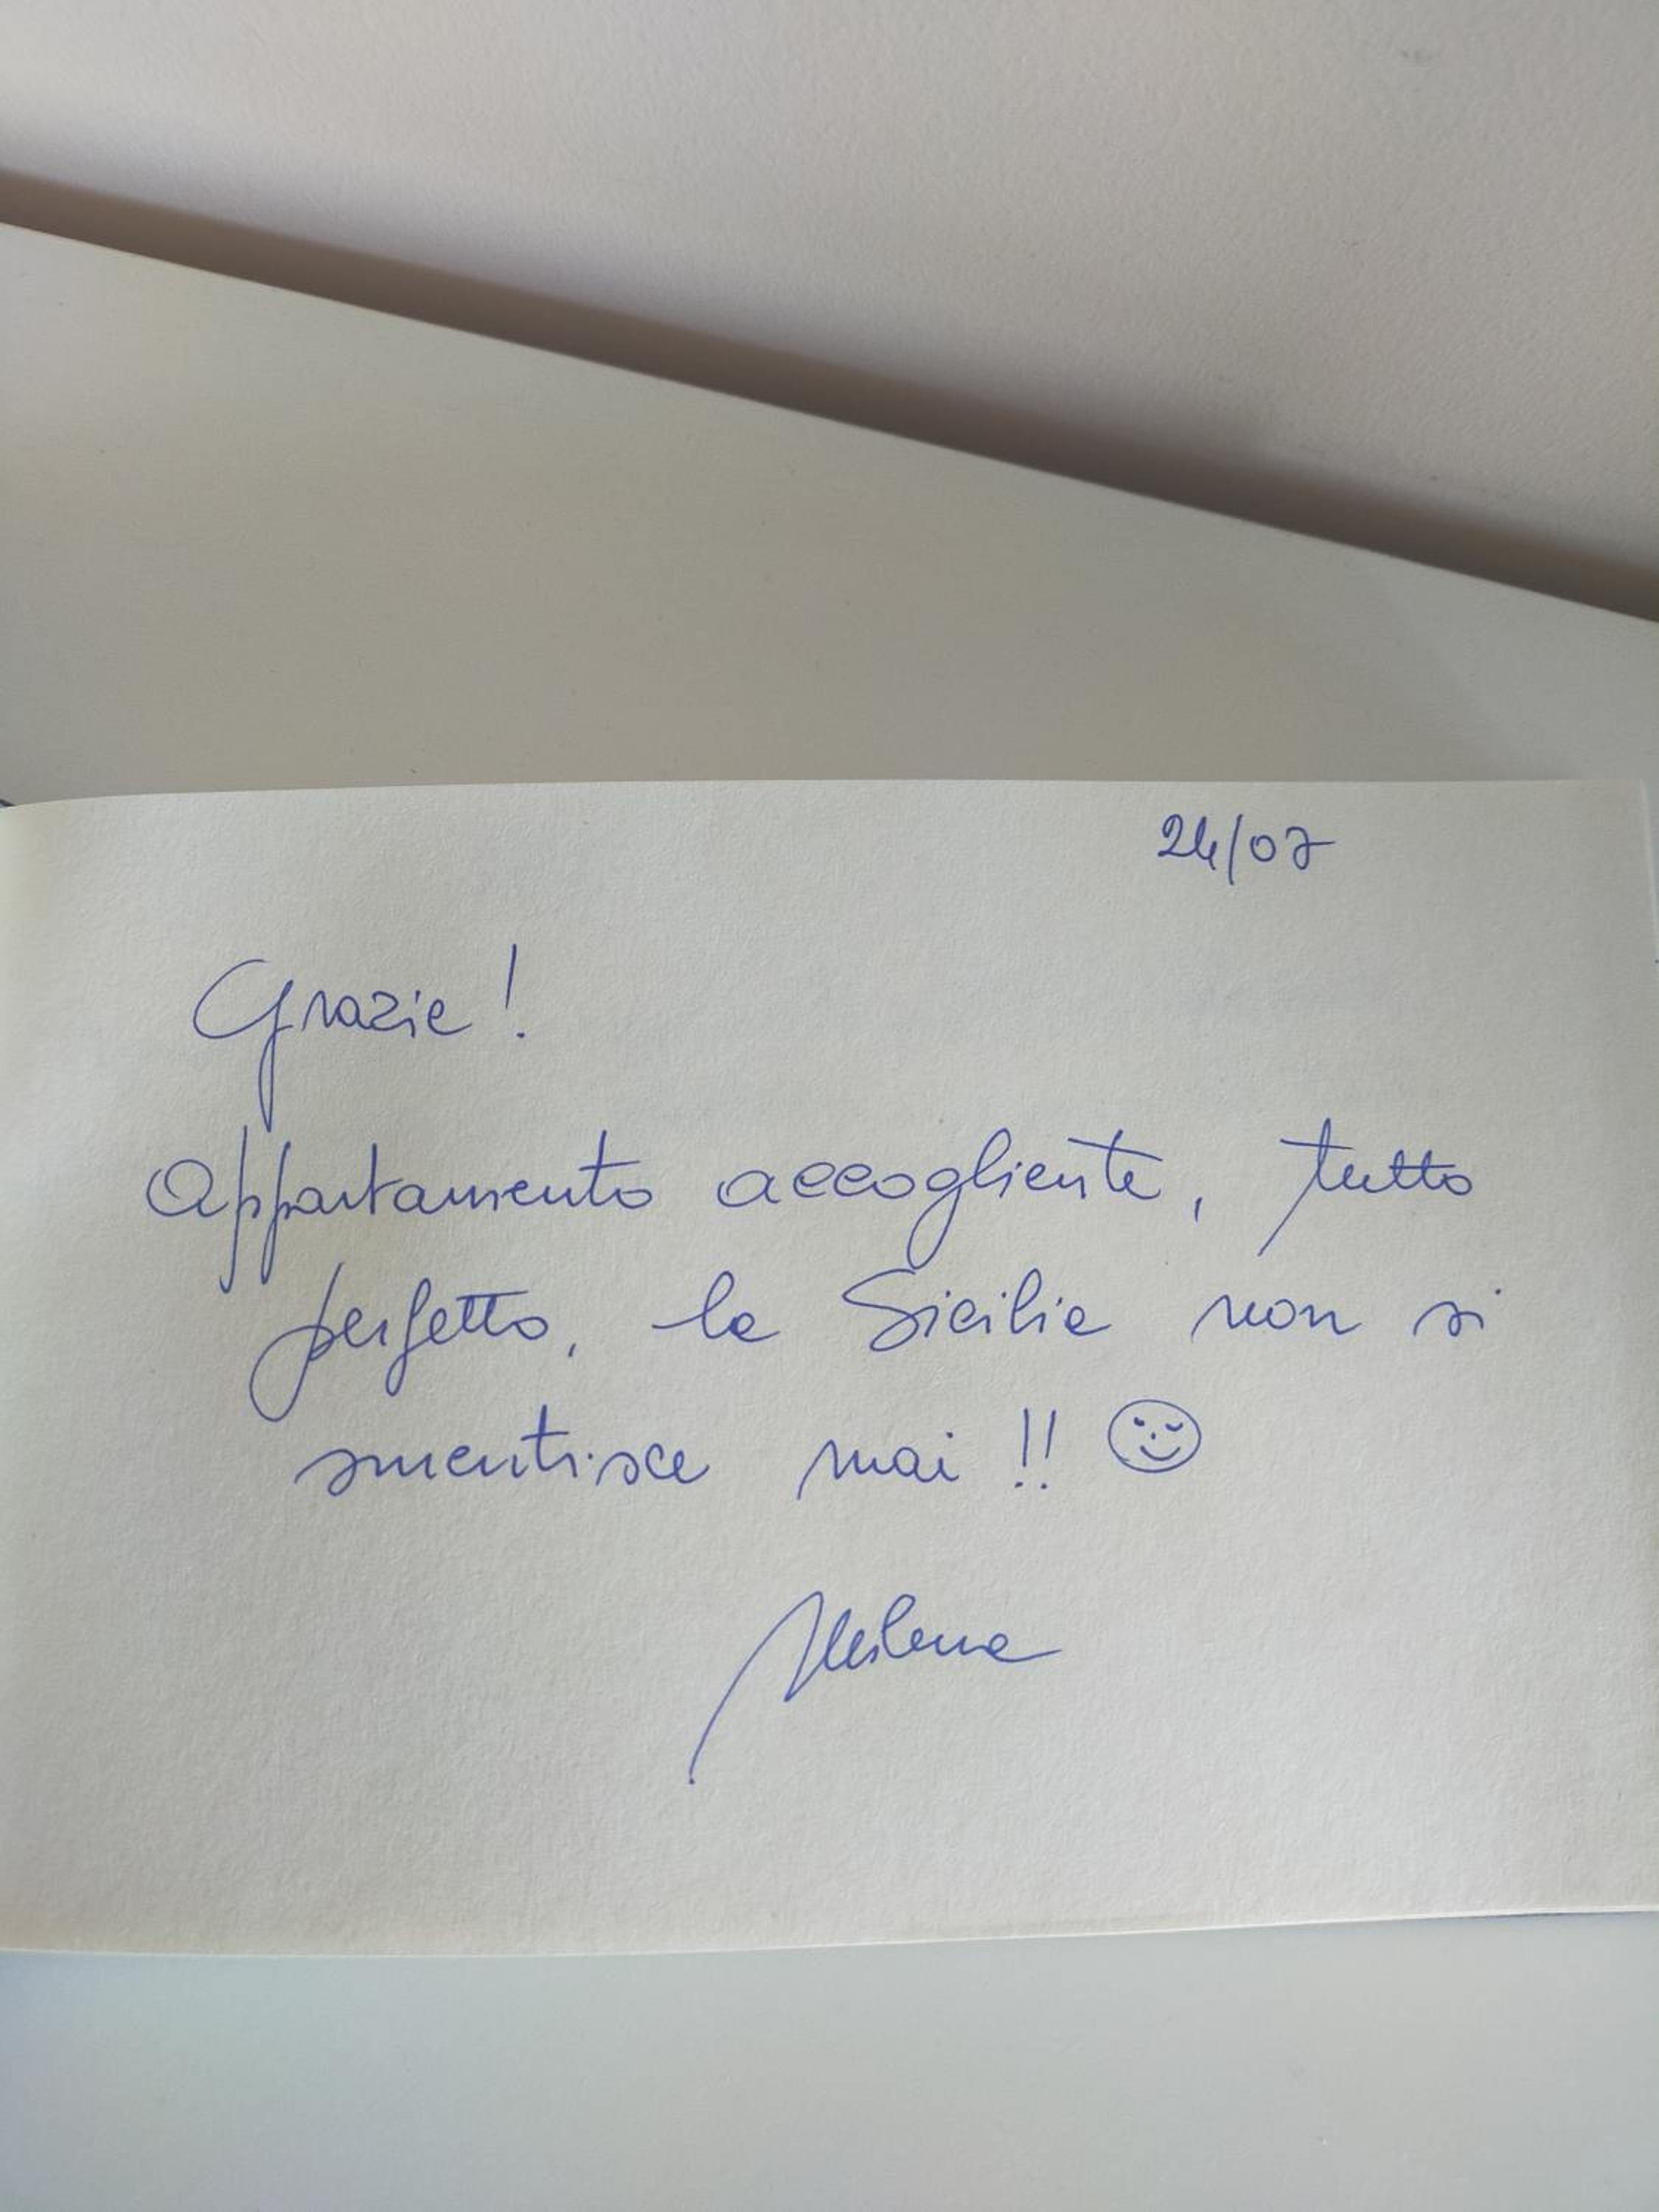 24/07
Grazie!
Appartamento accogliente, tutto
perfetto, la Sicilia non si
smentisce mai!!
Milena